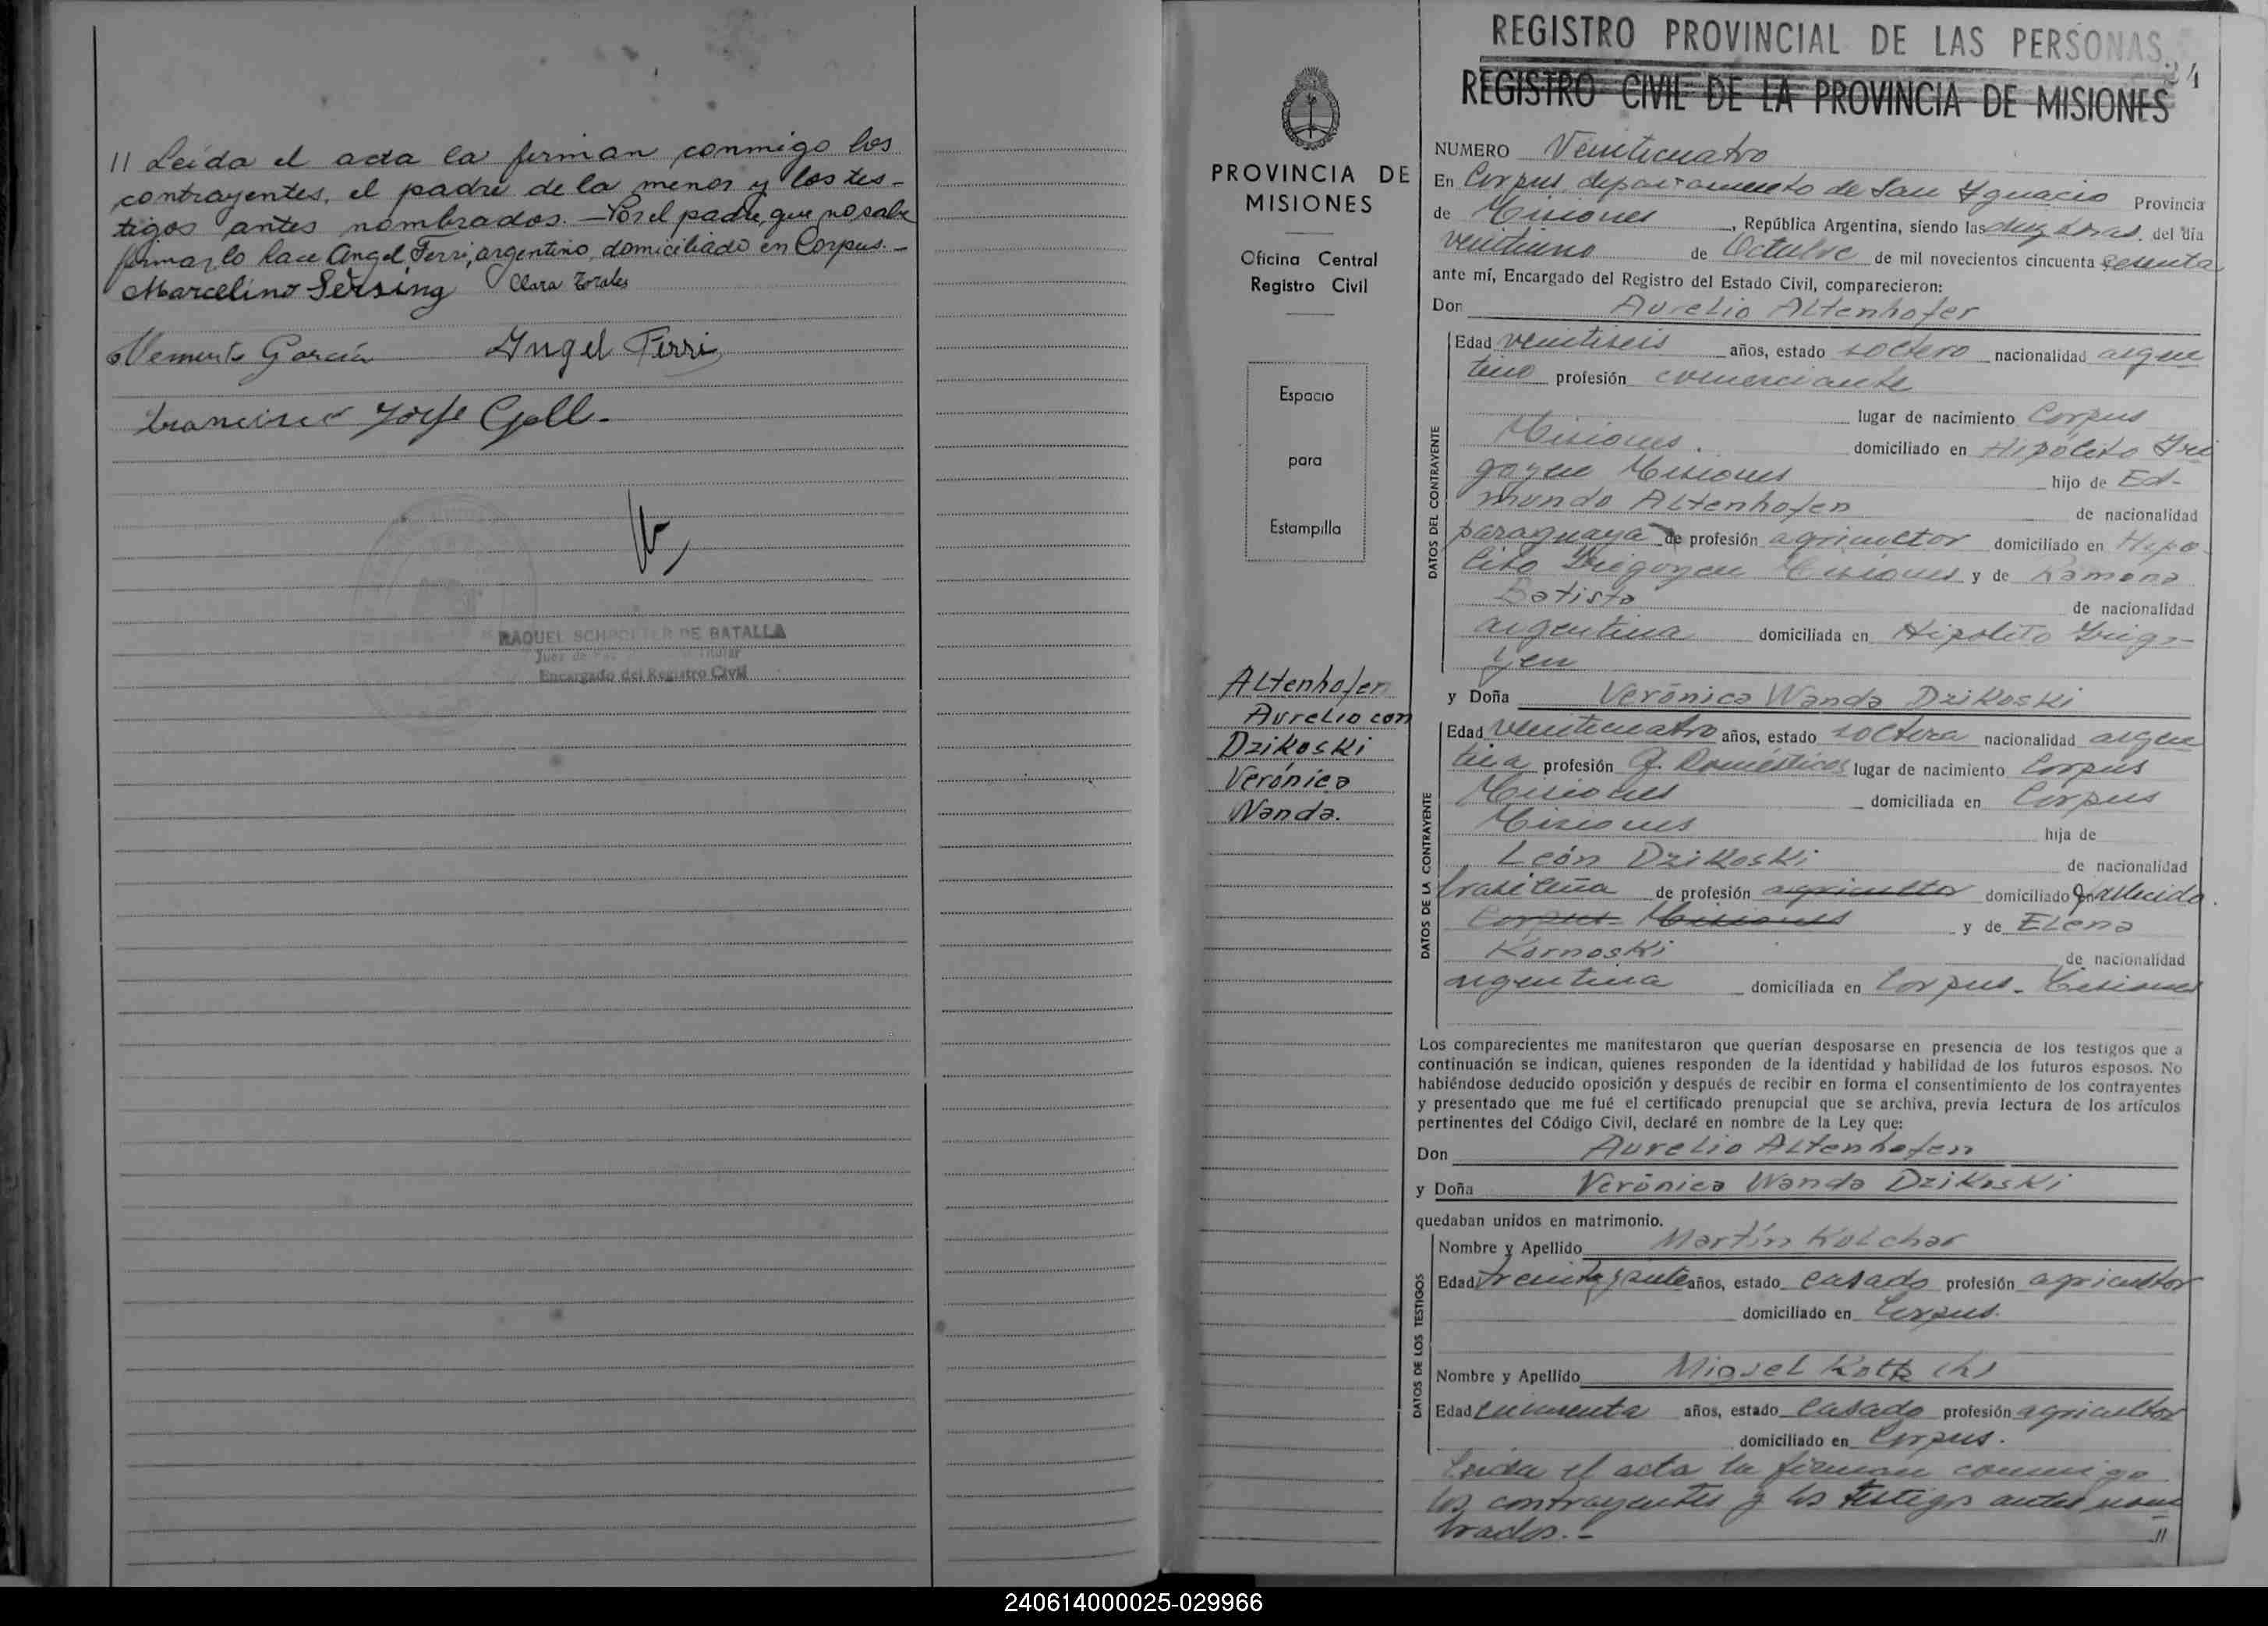 // Leída el acta la firman conmigo los
contrayentes, el padre de la menor y los tes-
tigos antes nombrados. - Por el padre, que no sabe
firmar, lo hace Angel Ferri, argentino, domiciliado en Corpus. -
Marcelino Sersing Clara Torales
Clemente García Angel Ferri
Francisco Jorge Goll.
RAQUEL SCHROETER DE BATALLA
Juez de Paz Titular
Encargado del Registro Civil
PROVINCIA DE
MISIONES
Oficina Central
Registro Civil
Espacio
para
Estampilla
Altenhofen
Aurelio con
Dzikoski
Verónica
Wanda.
REGISTRO PROVINCIAL DE LAS PERSONAS
24
REGISTRO CIVIL DE LA PROVINCIA DE MISIONES
NUMERO Veinticuatro
En Corpus, departamento de San Ygnacio Provincia
de Misiones, República Argentina, siendo las diez horas. del día
veintiuno de Octubre de mil novecientos cincuenta sesenta
ante mí, Encargado del Registro del Estado Civil, comparecieron:
Don Aurelio Altenhofer
DATOS DEL CONTRAYENTE
Edad veintiseis años, estado soltero nacionalidad argen
tino profesión comerciante
lugar de nacimiento Corpus
Misiones. domiciliado en Hipólito Yri
goyen Misiones hijo de Ed-
mundo Altenhofen de nacionalidad
paraguaya de profesión agricultor domiciliado en Hipo-
lito Yrigoyen Misiones y de Ramona
Batista de nacionalidad
argentina domiciliada en Hipolito Yrigo-
yen
y Doña Verónica Wanda Dzikoski
DATOS DE LA CONTRAYENTE
Edad veinticuatro años, estado soltera nacionalidad argen
tina profesión Q. Domésticos lugar de nacimiento Corpus
Misiones domiciliada en Corpus
Misiones hija de
León Dzikoski de nacionalidad
brasileña de profesión agricultor domiciliado en fallecido.
Corpus Misiones y de Elena
Kornoski de nacionalidad
argentina domiciliada en Corpus - Misiones
Los comparecientes me manifestaron que querían desposarse en presencia de los testigos que a
continuación se indican, quienes responden de la identidad y habilidad de los futuros esposos. No
habiéndose deducido oposición y después de recibir en forma el consentimiento de los contrayentes
y presentado que me fué el certificado prenupcial que se archiva, previa lectura de los artículos
pertinentes del Código Civil, declaré en nombre de la Ley que:
Don Aurelio Altenhofen
y Doña Verónica Wanda Dzikoski
quedaban unidos en matrimonio.
DATOS DE LOS TESTIGOS
Nombre y Apellido Martín Kolchar
Edad treinta y siete años, estado casado profesión agricultor
domiciliado en Corpus.
Nombre y Apellido Miguel Kotk (h)
Edad cincuenta años, estado casado profesión agricultor
domiciliado en Corpus.
Leida el acta la firman conmigo
los contrayentes y los testigos antes nom
brados. -
//
240614000025-029966